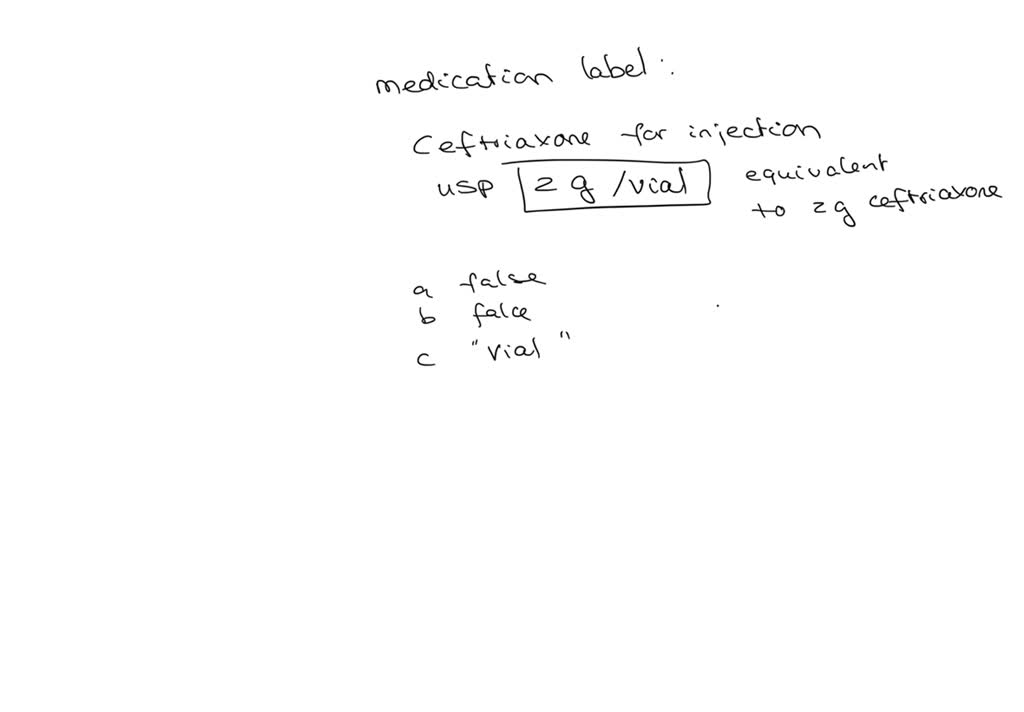 medication label :.
Ceftriaxone for injection
USP 2 g /vial equivalent
to 2g ceftriaxone
a false
b false
c "vial"